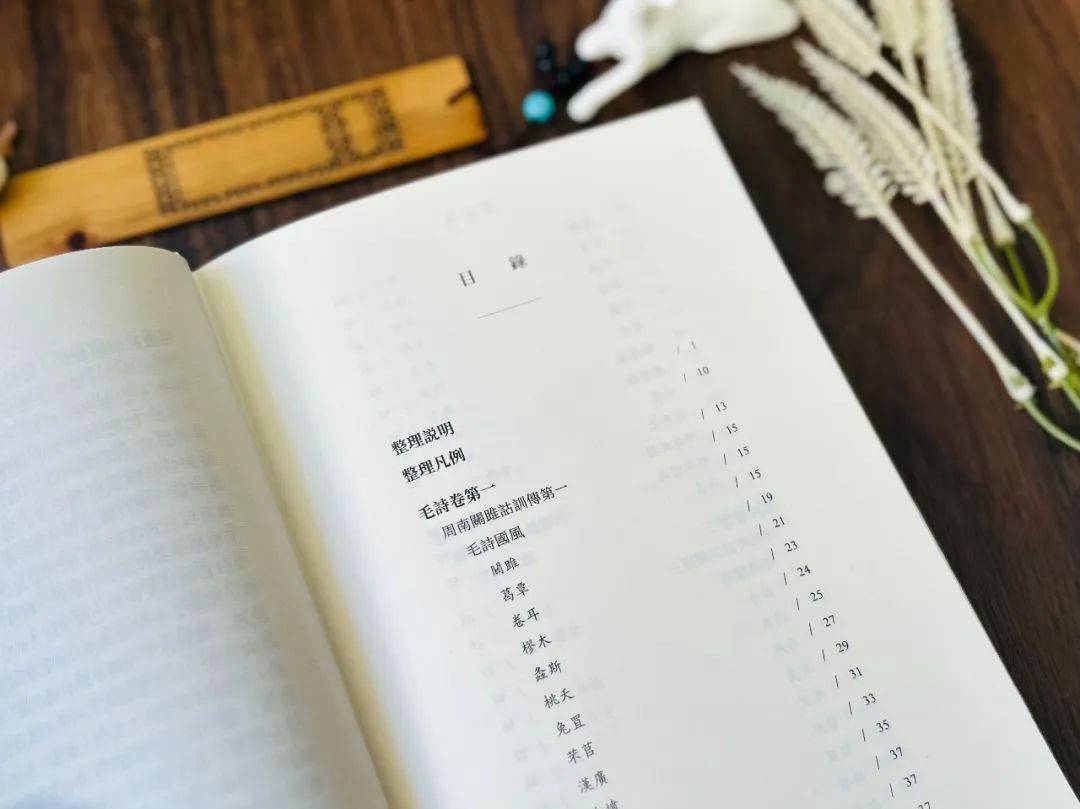 目 錄
整理説明 / 1
整理凡例 / 10
毛詩卷第一 / 13
周南關雎詁訓傳第一 / 15
毛詩國風 / 15
關雎 / 15
葛覃 / 19
卷耳 / 21
樛木 / 23
螽斯 / 24
桃夭 / 25
兔罝 / 27
芣苢 / 29
漢廣 / 31
/ 33
/ 35
/ 37
/ 37